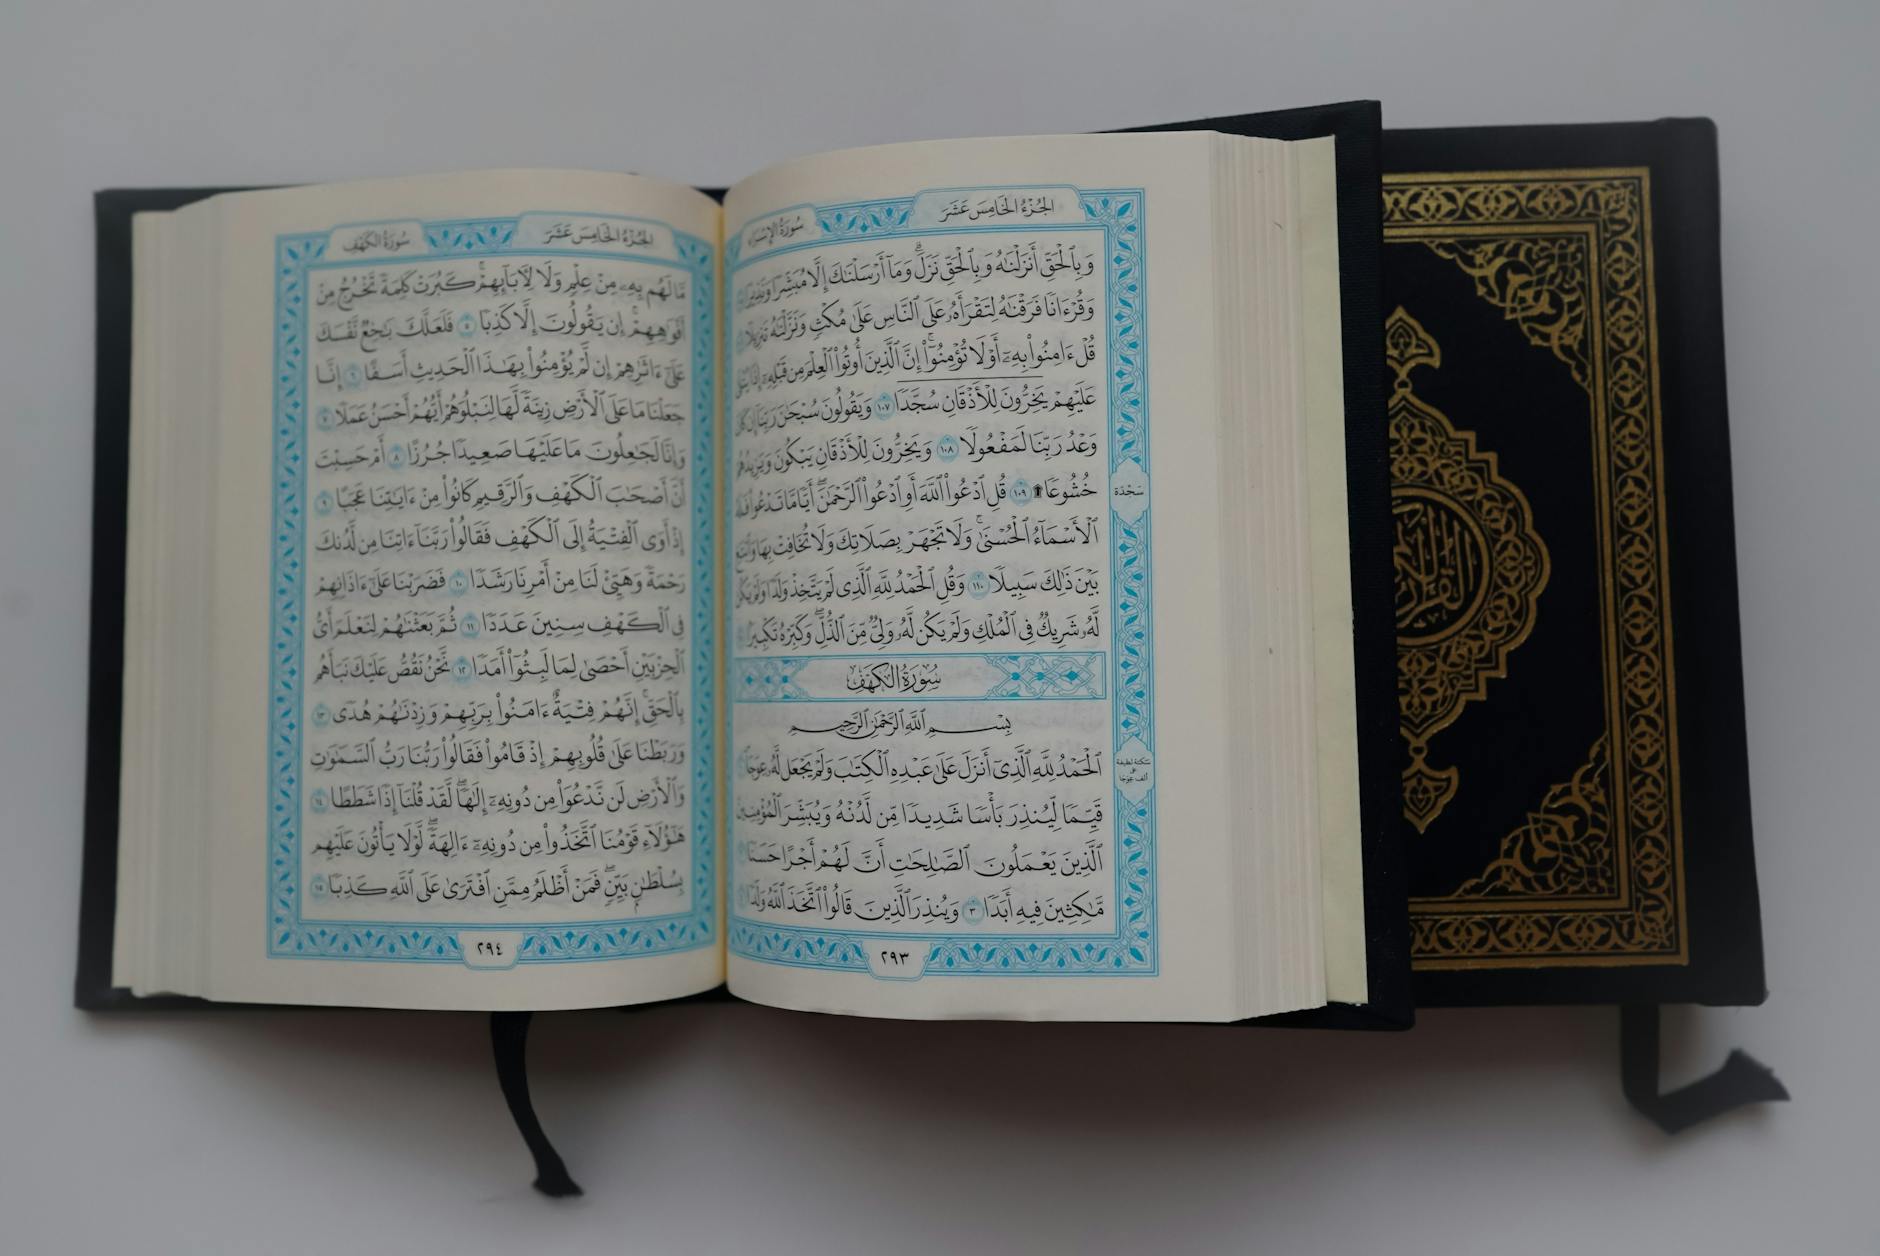 الجُزْءُ الخَامِسَ عَشَرَ
سُورَةُ الإِسْرَاء
وَبِٱلْحَقِّ أَنزَلْنَٰهُ وَبِٱلْحَقِّ نَزَلَۗ وَمَآ أَرْسَلْنَٰكَ إِلَّا مُبَشِّرًا وَنَذِيرًا
وَقُرْءَانًا فَرَقْنَٰهُ لِتَقْرَأَهُۥ عَلَى ٱلنَّاسِ عَلَىٰ مُكْثٍ وَنَزَّلْنَٰهُ تَنزِيلًا
قُلْ ءَامِنُوا۟ بِهِۦٓ أَوْ لَا تُؤْمِنُوٓا۟ۚ إِنَّ ٱلَّذِينَ أُوتُوا۟ ٱلْعِلْمَ مِن قَبْلِهِۦٓ إِذَا يُتْلَىٰ
عَلَيْهِمْ يَخِرُّونَ لِلْأَذْقَانِ سُجَّدًا ١٠٧ وَيَقُولُونَ سُبْحَٰنَ رَبِّنَآ إِن كَانَ
وَعْدُ رَبِّنَا لَمَفْعُولًا ١٠٨ وَيَخِرُّونَ لِلْأَذْقَانِ يَبْكُونَ وَيَزِيدُهُمْ
خُشُوعًا ۩ ١٠٩ قُلِ ٱدْعُوا۟ ٱللَّهَ أَوِ ٱدْعُوا۟ ٱلرَّحْمَٰنَۖ أَيًّا مَّا تَدْعُوا۟ فَلَهُ
ٱلْأَسْمَآءُ ٱلْحُسْنَىٰۚ وَلَا تَجْهَرْ بِصَلَاتِكَ وَلَا تُخَافِتْ بِهَا وَٱبْتَغِ
بَيْنَ ذَٰلِكَ سَبِيلًا ١١٠ وَقُلِ ٱلْحَمْدُ لِلَّهِ ٱلَّذِى لَمْ يَتَّخِذْ وَلَدًا وَلَمْ يَكُن
لَّهُۥ شَرِيكٌ فِى ٱلْمُلْكِ وَلَمْ يَكُن لَّهُۥ وَلِىٌّ مِّنَ ٱلذُّلِّۖ وَكَبِّرْهُ تَكْبِيرًا
سُورَةُ الكَهْفِ
بِسْمِ ٱللَّهِ ٱلرَّحْمَٰنِ ٱلرَّحِيمِ
ٱلْحَمْدُ لِلَّهِ ٱلَّذِىٓ أَنزَلَ عَلَىٰ عَبْدِهِ ٱلْكِتَٰبَ وَلَمْ يَجْعَل لَّهُۥ عِوَجَاۜ
قَيِّمًا لِّيُنذِرَ بَأْسًا شَدِيدًا مِّن لَّدُنْهُ وَيُبَشِّرَ ٱلْمُؤْمِنِينَ
ٱلَّذِينَ يَعْمَلُونَ ٱلصَّٰلِحَٰتِ أَنَّ لَهُمْ أَجْرًا حَسَنًا
مَّٰكِثِينَ فِيهِ أَبَدًا ٣ وَيُنذِرَ ٱلَّذِينَ قَالُوا۟ ٱتَّخَذَ ٱللَّهُ وَلَدًا
٢٩٣
سَجْدَة
سكتة لطيفة
على
ألف عِوَجَا
الجُزْءُ الخَامِسَ عَشَرَ
سُورَةُ الكَهْفِ
مَّا لَهُم بِهِۦ مِنْ عِلْمٍ وَلَا لِءَابَآئِهِمْۚ كَبُرَتْ كَلِمَةً تَخْرُجُ مِنْ
أَفْوَٰهِهِمْۚ إِن يَقُولُونَ إِلَّا كَذِبًا ٥ فَلَعَلَّكَ بَٰخِعٌ نَّفْسَكَ
عَلَىٰٓ ءَاثَٰرِهِمْ إِن لَّمْ يُؤْمِنُوا۟ بِهَٰذَا ٱلْحَدِيثِ أَسَفًا ٦ إِنَّا
جَعَلْنَا مَا عَلَى ٱلْأَرْضِ زِينَةً لَّهَا لِنَبْلُوَهُمْ أَيُّهُمْ أَحْسَنُ عَمَلًا ٧
وَإِنَّا لَجَٰعِلُونَ مَا عَلَيْهَا صَعِيدًا جُرُزًا ٨ أَمْ حَسِبْتَ
أَنَّ أَصْحَٰبَ ٱلْكَهْفِ وَٱلرَّقِيمِ كَانُوا۟ مِنْ ءَايَٰتِنَا عَجَبًا ٩
إِذْ أَوَى ٱلْفِتْيَةُ إِلَى ٱلْكَهْفِ فَقَالُوا۟ رَبَّنَآ ءَاتِنَا مِن لَّدُنكَ
رَحْمَةً وَهَيِّئْ لَنَا مِنْ أَمْرِنَا رَشَدًا ١٠ فَضَرَبْنَا عَلَىٰٓ ءَاذَانِهِمْ
فِى ٱلْكَهْفِ سِنِينَ عَدَدًا ١١ ثُمَّ بَعَثْنَٰهُمْ لِنَعْلَمَ أَىُّ
ٱلْحِزْبَيْنِ أَحْصَىٰ لِمَا لَبِثُوٓا۟ أَمَدًا ١٢ نَّحْنُ نَقُصُّ عَلَيْكَ نَبَأَهُم
بِٱلْحَقِّۚ إِنَّهُمْ فِتْيَةٌ ءَامَنُوا۟ بِرَبِّهِمْ وَزِدْنَٰهُمْ هُدًى ١٣
وَرَبَطْنَا عَلَىٰ قُلُوبِهِمْ إِذْ قَامُوا۟ فَقَالُوا۟ رَبُّنَا رَبُّ ٱلسَّمَٰوَٰتِ
وَٱلْأَرْضِ لَن نَّدْعُوَا۟ مِن دُونِهِۦٓ إِلَٰهًاۖ لَّقَدْ قُلْنَآ إِذًا شَطَطًا ١٤
هَٰٓؤُلَآءِ قَوْمُنَا ٱتَّخَذُوا۟ مِن دُونِهِۦٓ ءَالِهَةًۖ لَّوْلَا يَأْتُونَ عَلَيْهِم
بِسُلْطَٰنٍۭ بَيِّنٍۖ فَمَنْ أَظْلَمُ مِمَّنِ ٱفْتَرَىٰ عَلَى ٱللَّهِ كَذِبًا ١٥
٢٩٤